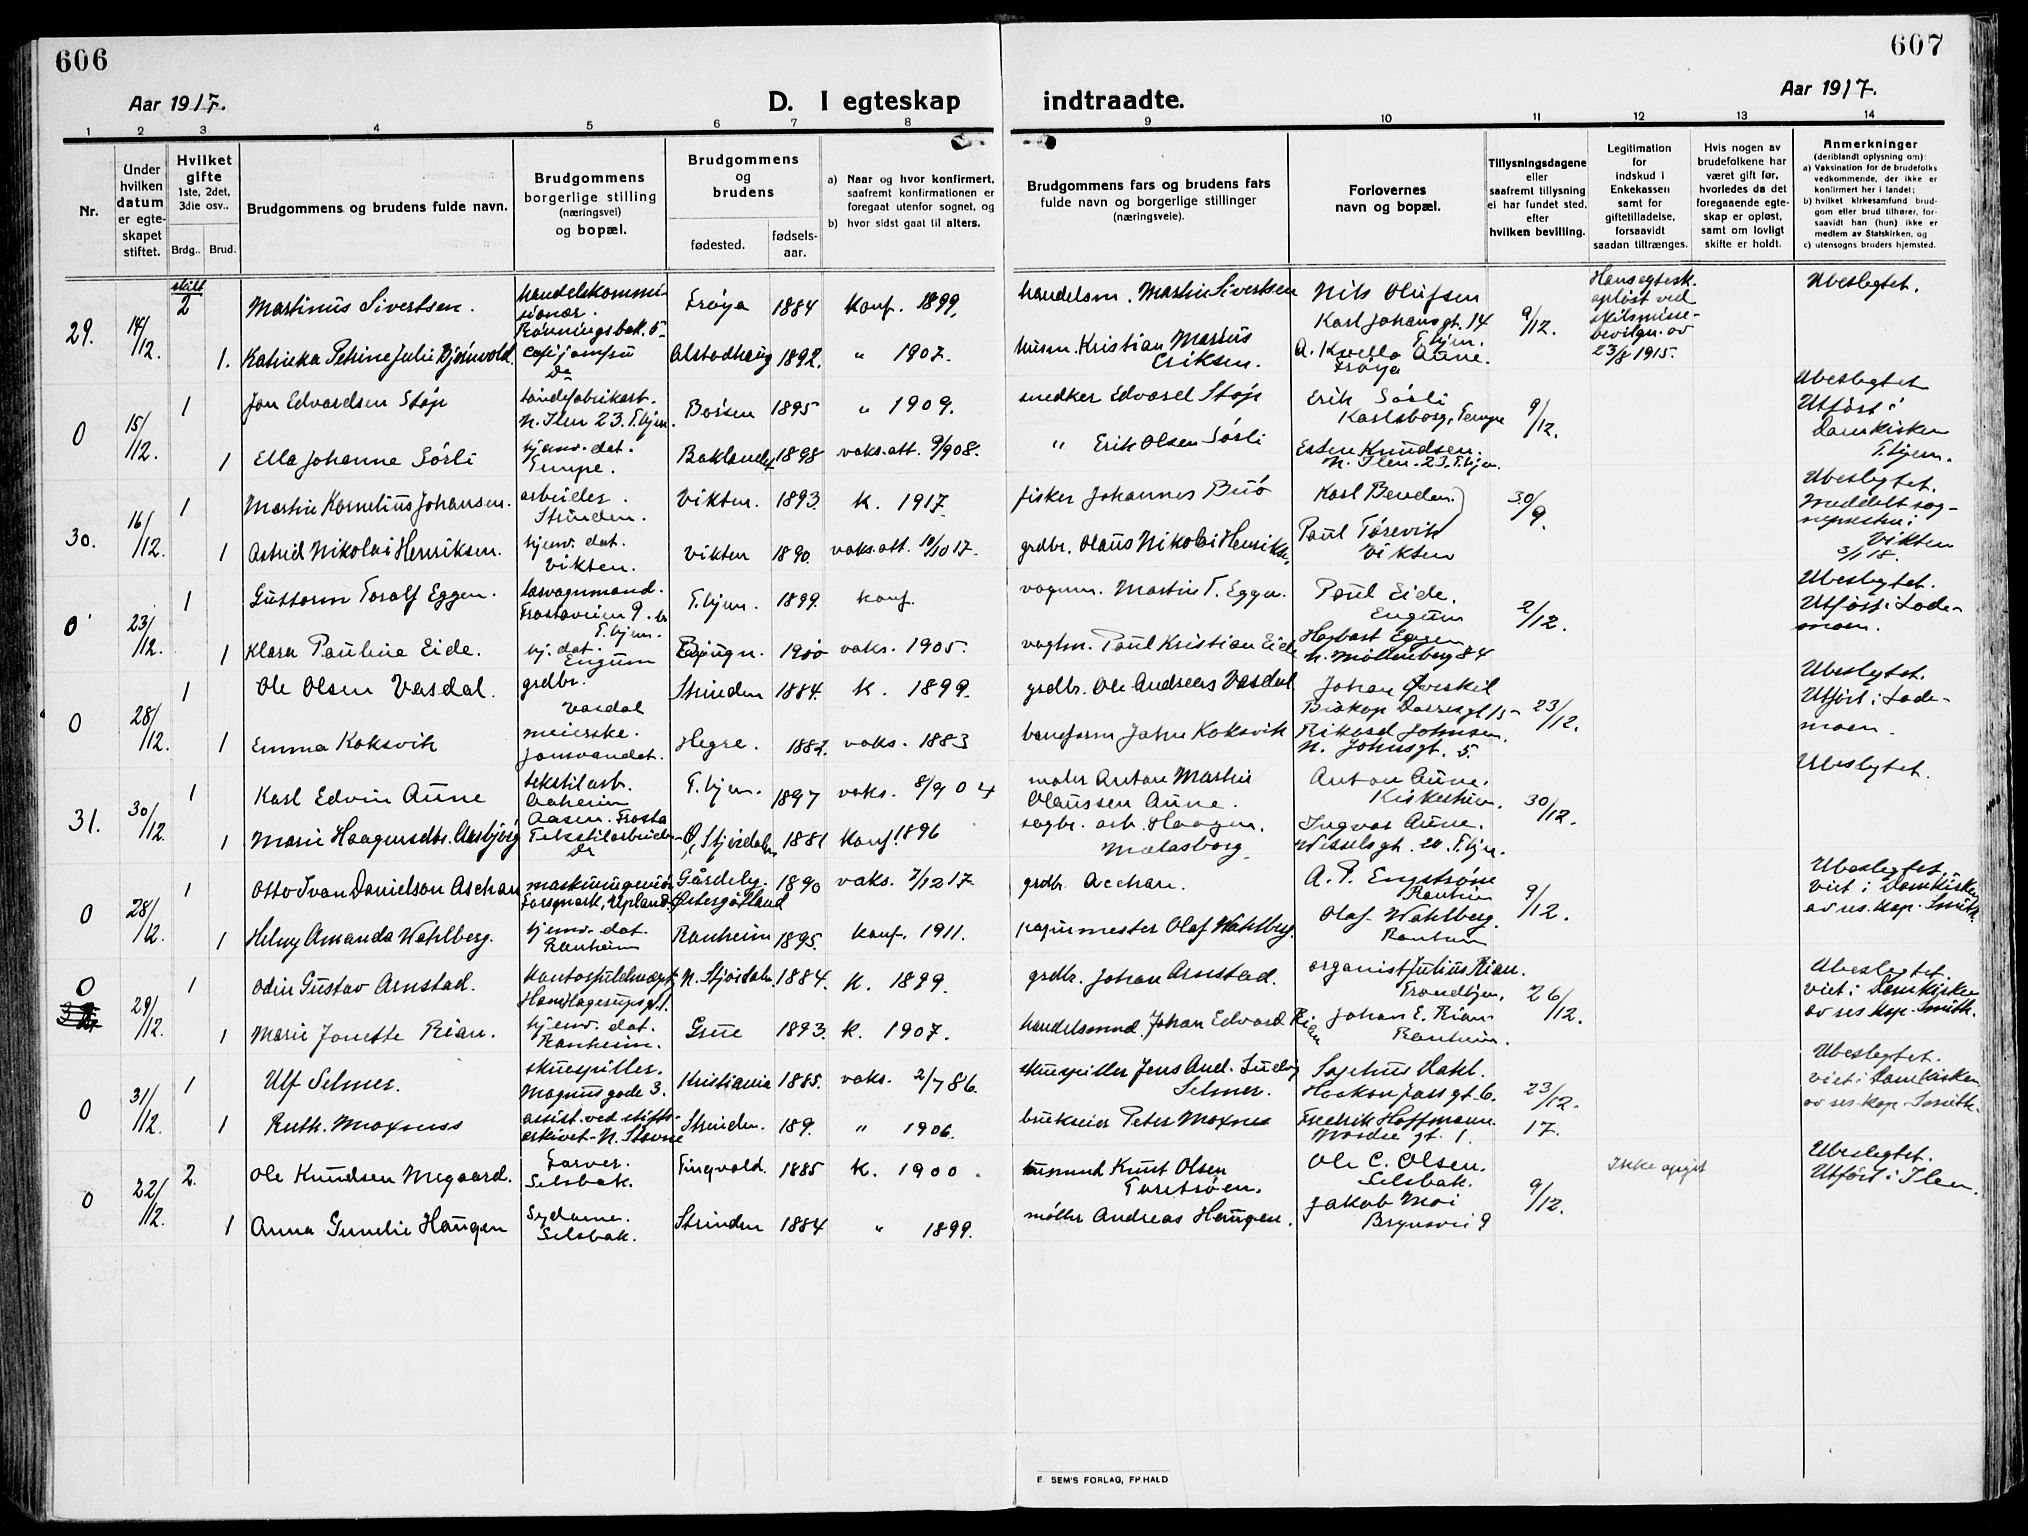 606
607
Aar 1917.
D. I egteskap indtraadte.
Aar 1917.
1 2 3 4 5 6 7 8 9 10 11 12 13 14
Nr.
Under hvilken datum er egteskapet stiftet.
Hvilket gifte 1ste, 2det, 3die osv..
Brdg.. Brud.
Brudgommens og brudens fulde navn.
Brudgommens borgerlige stilling (næringsvei) og bopæl.
Brudgommens og brudens
fødested. fødselsaar.
a) Naar og hvor konfirmert, saafremt konfirmationen er foregaat utenfor sognet, og
b) hvor sidst gaat til alters.
Brudgommens fars og brudens fars fulde navn og borgerlige stillinger (næringsveie).
Forlovernes navn og bopæl.
Tillysningsdagene eller saafremt tillysning ei har fundet sted, efter hvilken bevilling.
Legitimation for indskud i Enkekassen samt for giftetilladelse, forsaavidt saadan tiltrænges.
Hvis nogen av brudefolkene har været gift før, hvorledes da det foregaaende egteskap er opløst, samt om lovligt skifte er holdt.
Anmerkninger (deriblandt oplysning om):
a) Vaksination for de brudefolks vedkommende, der ikke er konfirmert her i landet;
b) hvilket kirkesamfund brudgom eller brud tilhører, forsaavidt han (hun) ikke er medlem av Statskirken, og
c) utensogns bruders hjemsted.
29. 14/12. skilt 2 Martinus Sivertsen. handelskommisionær. Frøya 1884 konf. 1899. handelsm. Martin Sivertsen Nils Olufsen Karl Johansgt. 14 T.hjem. 9/12. Hans egtesk. opløst ved skilsmissebevilgn. av 23/8 1915. Ubeslegtet.
1. Katinka Petrine Julie Bjørnvold. Do Alstadhaug 1892. " 1907. husm. Kristian Marius Eriksen. A. Kvello Aune. Frøya
0 15/12. 1 Jon Edvardsen Støp N. Ilen 23. T.hjem. Børsen 1895 " 1909. snedker Edvard Støp Erik Sørli Karlsborg, Tempe 9/12. Ubeslegtet Utført i Domkirken T.hjem.
1 Ella Johanne Sørli hjemv. dat. Tempe. Baklandet 1898 vaks.att. 9/908. " Erik Olsen Sørli Esten Knudsen. N. Ilen. 23. T.hjem.
30. 16/12. 1 Martin Kornelius Johansen. arbeider. Strinden. Vikten. 1893. k. 1917. fisker Johannes Buø Karl Bendan. 30/9. Ubeslegtet. Meddelt sognepresten i Vikten 3/1 18.
1 Astrid Nikolai Henriksen. hjemv. dat. Vikten. Vikten 1890. vaks.att. 10/10 17. grdbr. Olaus Nikolai Henriks. Paul Tørevik Vikten
0 23/12. 1 Guttorm Toralf Eggen. T.hjem. T.hjem. 1899. konf. vognm. Martin T. Eggen. Paul Eide. Engum 2/12. Ubeslegtet. Utført i Lademoen.
1 Klara Pauline Eide. hj. dat. Engum 1900 vaks. 1905. Paul Kristian Eide N. Møllenberg 84
0 28/12. 1 Ole Olsen Vasdal. grdbr. Vasdal Strinden 1884. k. 1899. grdbr. Ole Andreas Vasdal 23/12. Ubeslegtet. Utført i Lademoen.
1 Emma Koksvik meierske. Jonsvandet. Hegre. vaks. 1883 baneform. John Koksvik Rikard Johnsen. N. Johnsgt. 5.
31. 30/12. 1 Karl Edvin Aune tekstilarb. T.hjem. 1897 vaks. 8/904 maler Anton Martin Olaussen Aune. Anton Aune. 30/12. Ubeslegtet.
1 Marie Haagensdtr. Aasbjørg Tekstilarbeider Do Ø. Stjørdalen 1881 konf. 1896 Haagen. Ingvar Aune. Wesselsgt. 20. T.hjem.
0 28/12. 1 Otto Ivan Danielson Aschan maskiningeniør Forsmark, Upland. Østergøtland 1890 vaks. 7/12 17. grdbr. Aschan. A. P. Engstrøm Ranheim 9/12. Ubeslegtet. viet i Domkirken av res. kap. Smith.
1 Helny Amanda Wahlberg. hjemv. dat. Ranheim Ranheim 1895. konf. 1911. papirmester Olaf Wahlberg. Olaf Wahlberg. Ranheim
0 29/12. 1 Odin Gustav Arnstad. Hans Hagerupsgt. 1. N. Stjørdalen 1884. k. 1899. grdbr. Johan Arnstad. organist Julius Rian. Trondhjem. 26/12. Ubeslegtet. viet i Domkirken av res. kap. Smith.
1 Marie Jonette Rian. hjemv. dat. Ranheim. Grue 1893. k. 1907. handelsmnd. Johan Edvard Rian Johan E. Rian Ranheim.
0 31/12. 1 Ulf Selmer. skuespiller. Magnusgade 3. Kristiania 1885. vaks. 2/7 86. skuespiller Jens And. Ludvig Selmer. 23/12. 17. Ubeslegtet. viet i Domkirken av res. kap. Smith.
1 Ruth Moxness assist. ved stiftsarkivet - N. Stavne Strinden. 189. " 1906. brukseier Peter Moxnes Fredrik Hoffmann Nordre gt. 1.
0 22/12. 2. Ole Knudsen Megaard. Farver. Selsbak. Tingvold. 1885 k. 1900. Knut Olsen Ole C. Olsen. Selsbak. 9/12. Ikke opgit Ubeslegtet. Utført i Ilen.
1 Anna Gunelie Haugen Sydame. Selsbak. Strinden 1884 " 1899. møller Andreas Haugen. Jakob Moi
E. SEM'S FORLAG, FR.HALD